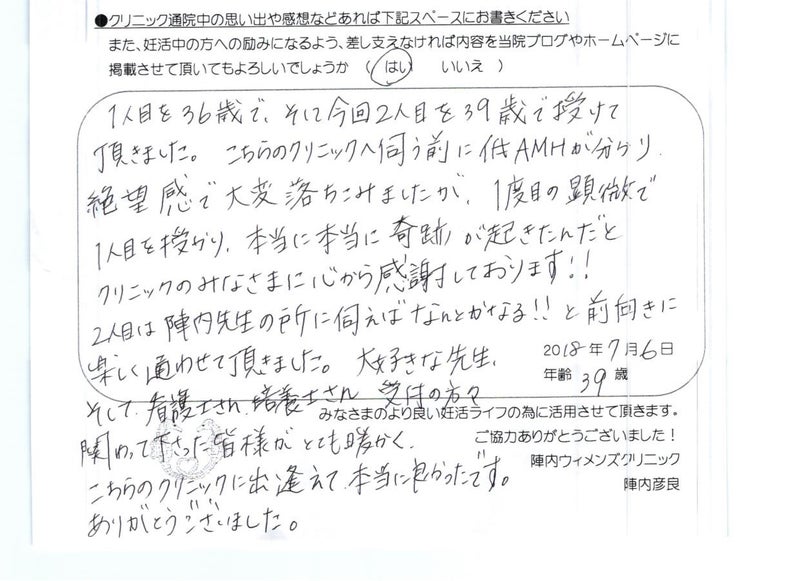 ●クリニック通院中の思い出や感想などあれば下記スペースにお書きください
また、妊活中の方への励みになるよう、差し支えなければ内容を当院ブログやホームページに
掲載させて頂いてもよろしいでしょうか （ はい いいえ ）
1人目を36歳で、そして今回2人目を39歳で授けて
頂きました。こちらのクリニックへ伺う前に低AMHが分かり、
絶望感で大変落ちこみましたが、1度目の顕微で
1人目を授かり、本当に本当に奇跡が起きたんだと
クリニックのみなさまに心から感謝しております!!
2人目は陣内先生の所に伺えばなんとかなる!!と前向きに
楽しく通わせて頂きました。大好きな先生、
2018年7月6日
年齢 39 歳
そして、看護士さん、培養士さん、受付の方々
みなさまのより良い妊活ライフの為に活用させて頂きます。
関わって下さった皆様がとても暖かく、
ご協力ありがとうございました！
陣内ウィメンズクリニック
こちらのクリニックに出逢えて本当に良かったです。
陣内彦良
ありがとうございました。